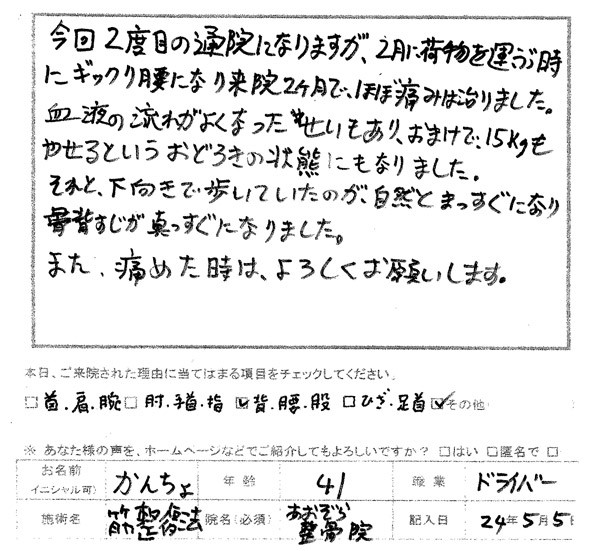 今回2度目の通院になりますが、2月に荷物を運ぶ時
にギックリ腰になり来院2ヶ月で、ほぼ痛みは治りました。
血液の流れがよくなったせいもあり、おまけで、15kgも
やせるというおどろきの状態にもなりました。
それと、下向きで歩いていたのが、自然とまっすぐになり
背すじが真っすぐになりました。
また、痛めた時は、よろしくお願いします。
本日、ご来院された理由に当てはまる項目をチェックしてください。
□首・肩・腕 □肘・手首・指 ☑背・腰・股 □ひざ・足首 ☑その他
※ あなた様の声を、ホームページなどでご紹介してもよろしいですか？ □はい □匿名で □
お名前 イニシャル可） かんちょ 年齢 41 職業 ドライバー
施術名 筋整復法 院名（必須） あおぞら整骨院 記入日 24年5月5日